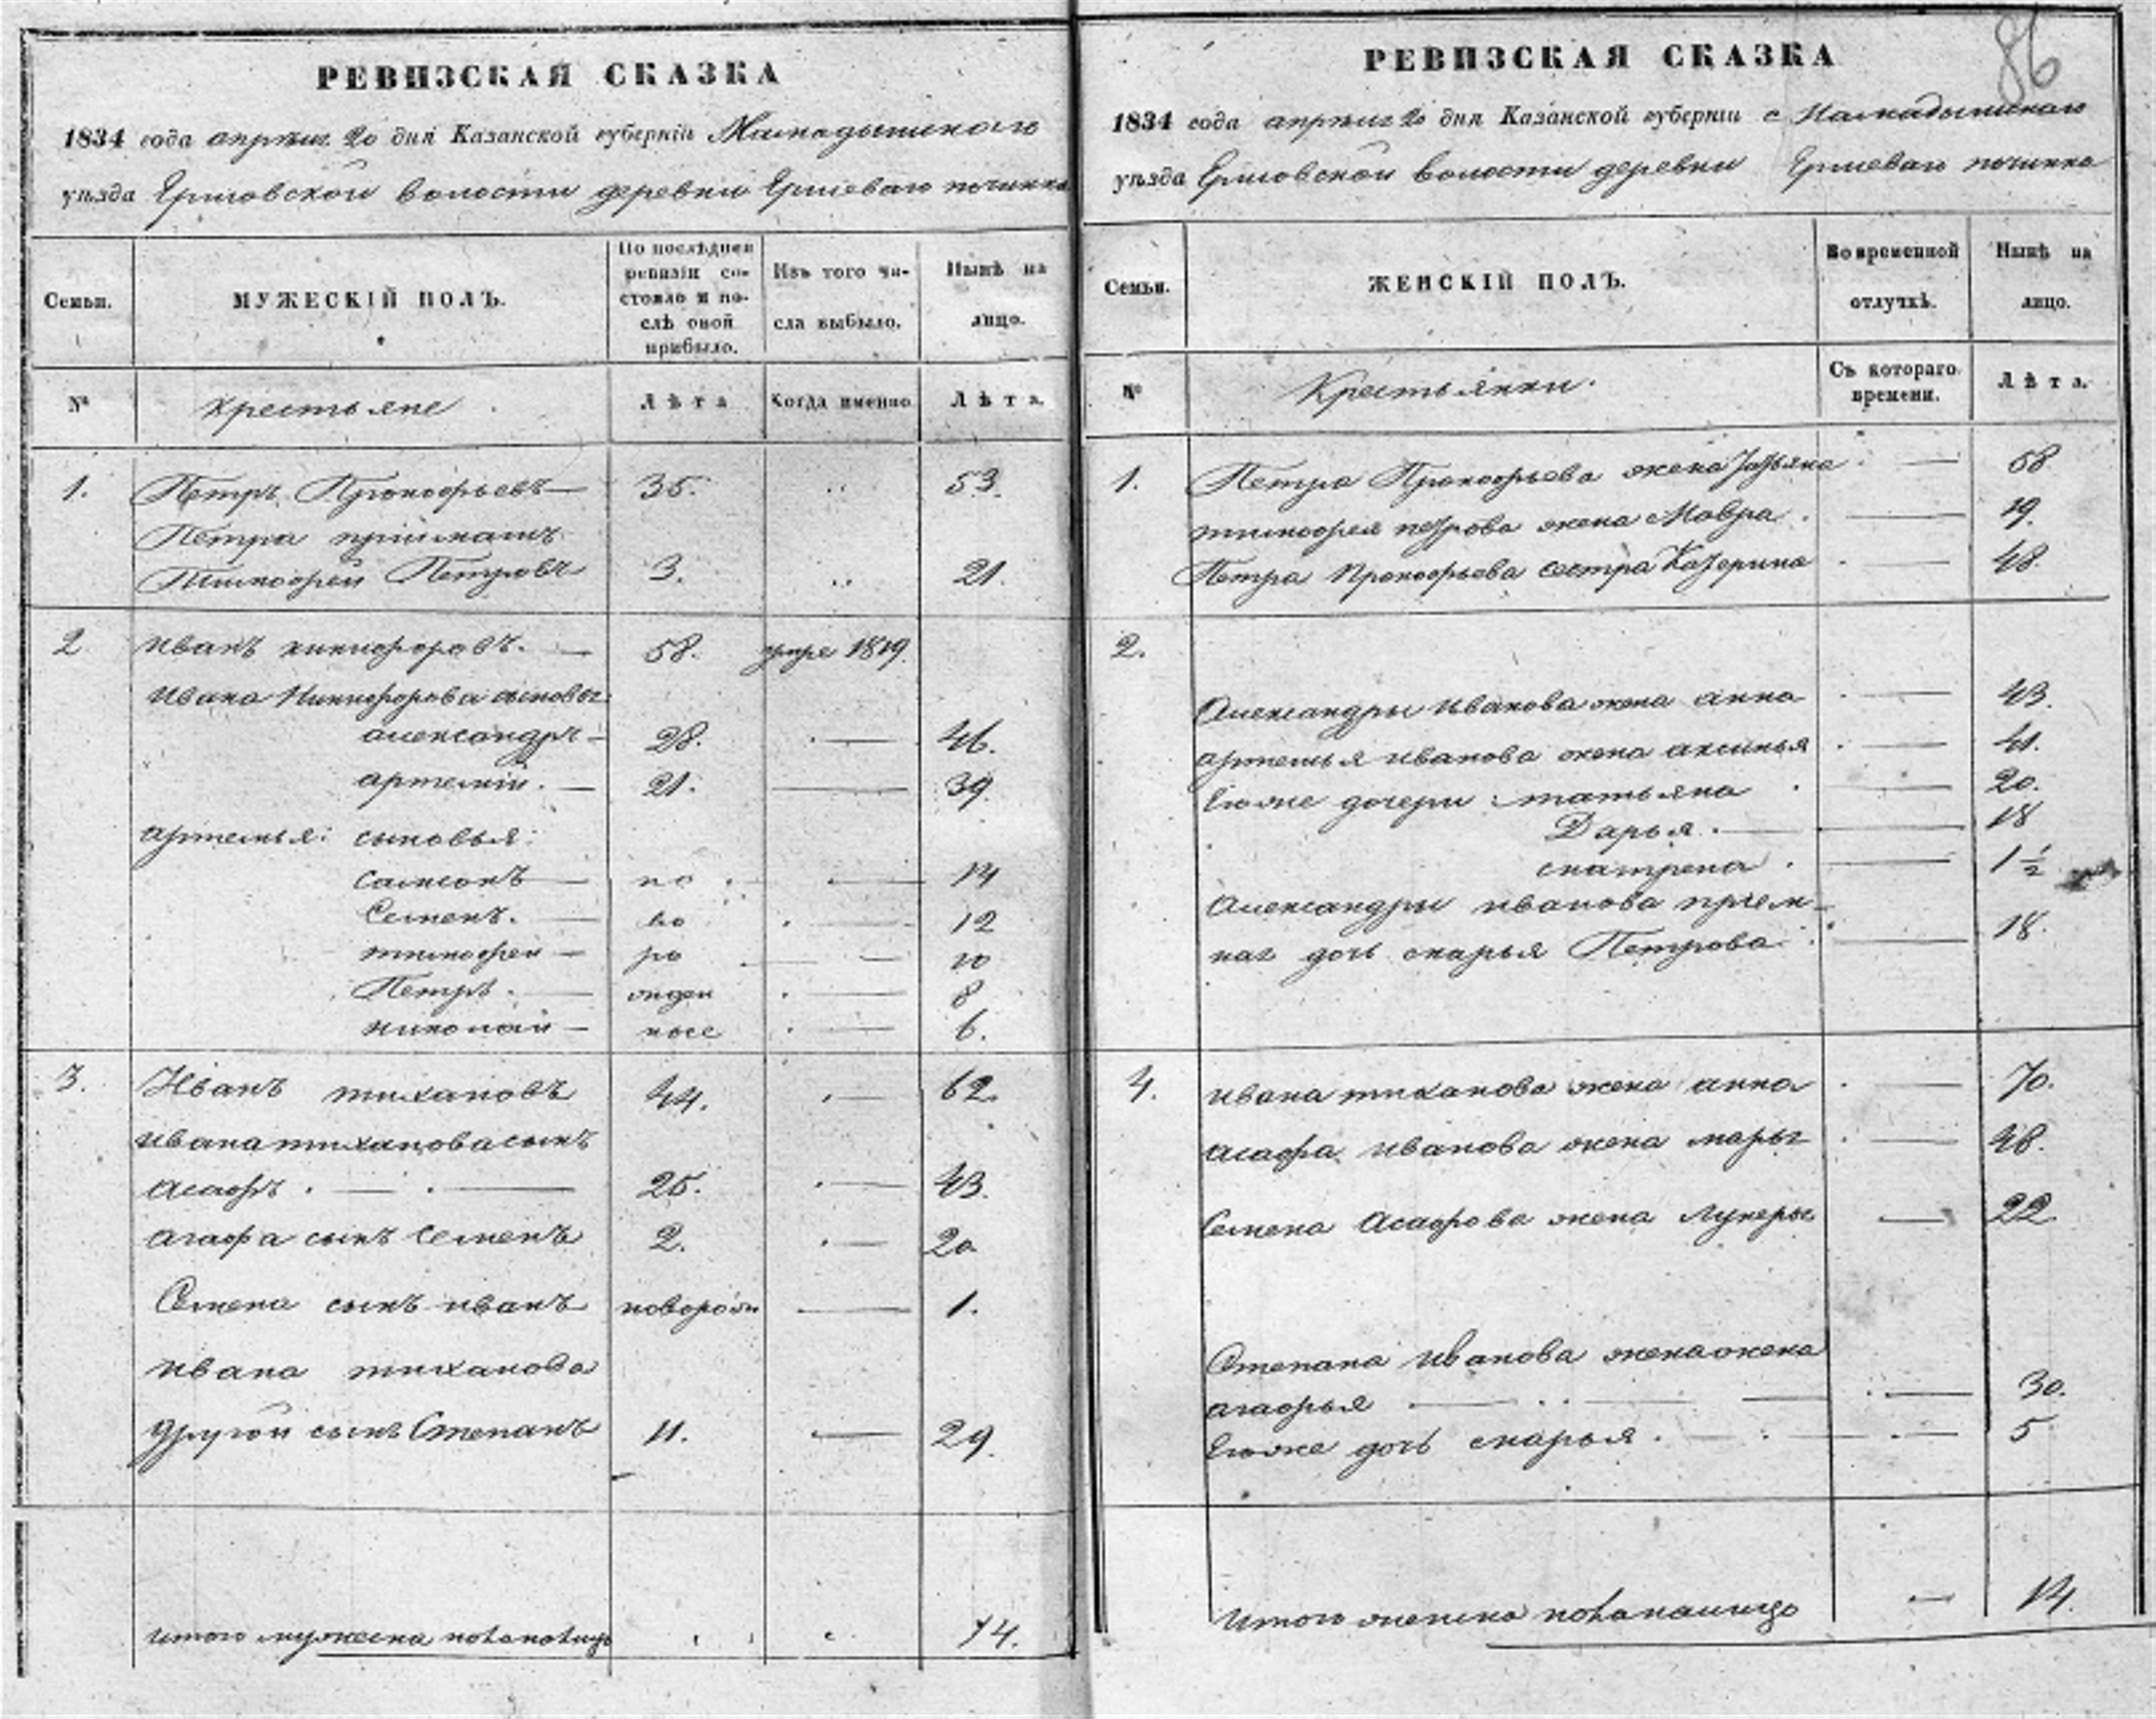 86
РЕВИЗСКАЯ СКАЗКА
1834 года апреля 20 дня Казанской губерніи Мамадышскаго
уѣзда Ершовской волости деревни Ершеваго починка
Семьи.
МУЖЕСКІЙ ПОЛЪ.
По послѣдней ревизіи состояло и послѣ оной прибыло.
Изъ того числа выбыло.
Нынѣ на лицо.
№
крестьяне
Лѣта
Когда именно
Лѣта.
1. Петръ Прокофьевъ 35. 53.
Петра пріймашъ
Тимофей Петровъ 3. 21.
2 иванъ никифоровъ. 58. умре 1819.
ивана Никифорова сыновья
александръ 28. 46.
артемій. 21. 39.
артемья: сыновья:
самсонъ по 14
Семенъ. во 12
тимофей ро 10
Петръ. жден 8
николай ные 6.
3. Иванъ тихановъ 44. 62.
ивана тиханова сынъ
асафъ. 25. 43.
агафа сынъ Семенъ 2. 20
Семена сынъ иванъ новорож 1.
ивана тиханова
другой сынъ Степанъ 11. 29.
итого мужеска пола налицо 14.
РЕВИЗСКАЯ СКАЗКА
1834 года апреля 20 дня Казанской губерніи с Мамадышскаго
уѣзда Ершовской волости деревни Ершеваго починка
Семьи.
ЖЕНСКІЙ ПОЛЪ.
Во временной отлучкѣ.
Нынѣ на лицо.
№
Крестьянки.
Съ котораго времени.
Лѣта.
1. Петра Прокофьева жена Татьяна 58
тимофея петрова жена Мавра 19.
Петра Прокофьева сестра Катерина 48.
2.
Александры иванова жена анна 43.
артемья иванова жена аксинья 41.
Его же дочери: татьяна 20.
Дарья. 18
матрена 1 ½
Александры иванова прием-
наг дочь марья Петрова 18.
4. ивана тиханова жена анна 70.
асафа иванова жена марья 48.
Семена Асафова жена Лукерья 22
Степана иванова жена жена
агафья 30.
Его же дочь марья. 5
итого женска пола налицо 14.